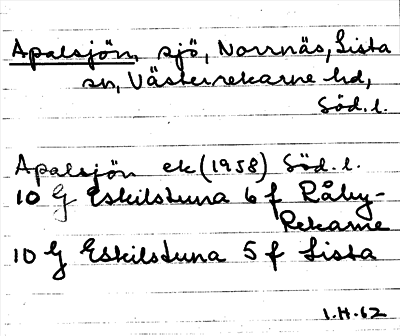 Apalsjön, sjö, Norrnäs, Lista
sn, Västerrekarne hd,
Söd. l.
Apalsjön ek (1958) Söd. l.
10 G Eskilstuna 6 f Råby-
Rekarne
10 G Eskilstuna 5 f Lista
1.H.62